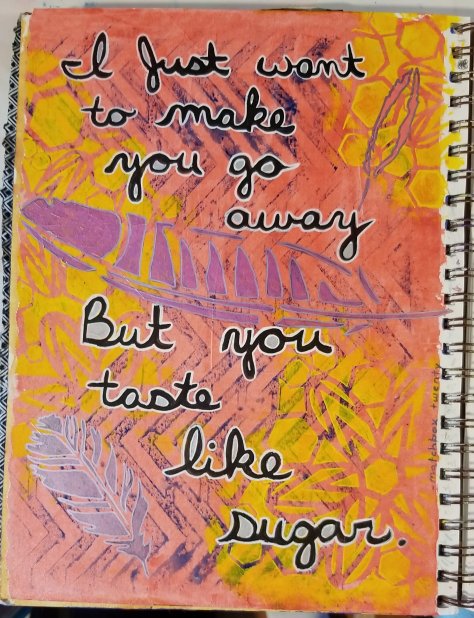 I Just want
to make
you go
away
But you
taste
like
sugar.
matchbox twenty